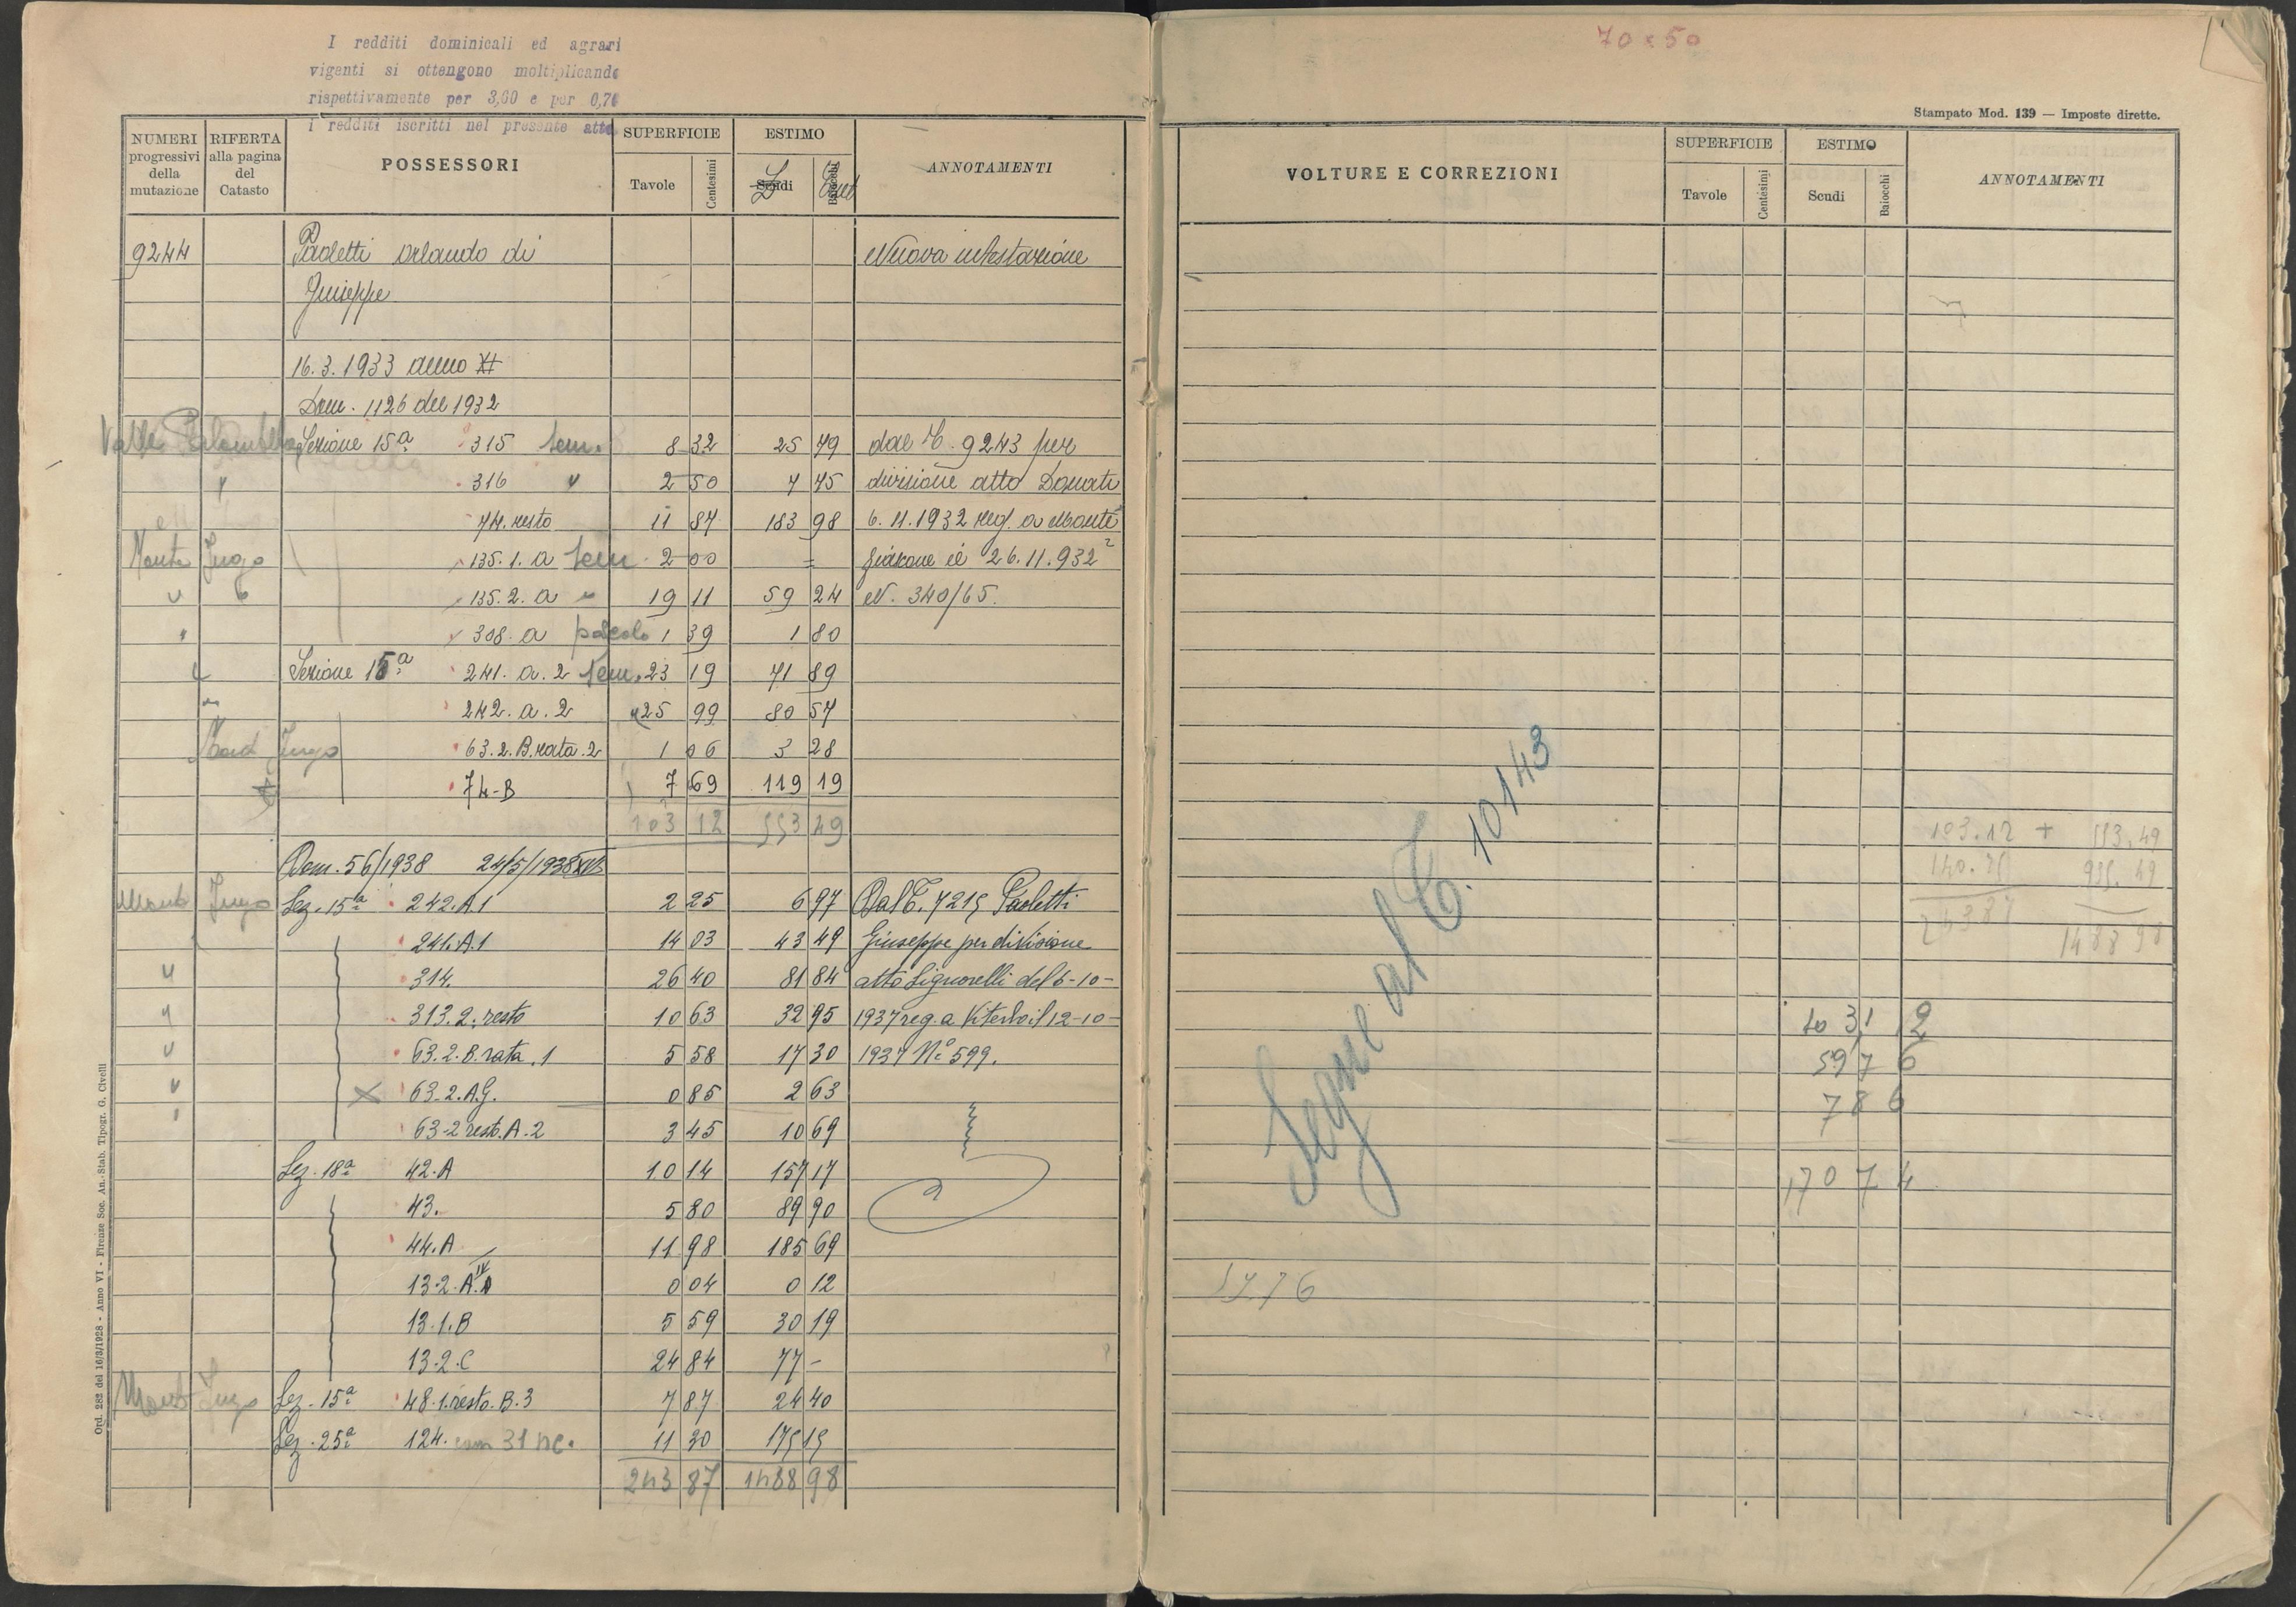 I redditi dominicali ed agrari
vigenti si ottengono moltiplicando
rispettivamente per 3,60 e per 0,70
i redditi iscritti nel presente atto
NUMERI progressivi della mutazione
RIFERTA alla pagina del Catasto
POSSESSORI
SUPERFICIE
Tavole Centesimi
ESTIMO
Scudi Baiocchi
L Cent
ANNOTAMENTI
9244 Paoletti Orlando di Nuova intestazione
Giuseppe
16.3.1933 anno XI
Dom. 1126 del 1932
Valle Sezione 15ª 315 Sem. 8 32 25 79 dal C. 9243 per
" 316 " 2 50 7 75 divisione atto Donati
74. resto 11 87 183 98 6.11.1932 reg. a Monte
Monte Jugo 135.1.a Sem 2 00 = fiascone il 26.11.932
" 135.2.a " 19 11 59 24 N. 340/65.
" 308.a pascolo 1 39 1 80
" Sezione 15ª 241.a.2 Sem. 23 19 71 89
" 242.a.2 " 25 99 80 57
Mont Jugo 63.2.B.rata.2 1 06 3 28
74-B 7 69 119 19
103 12 553 49
Dom. 56/1938 24/5/1938 XVI
Monte Jugo Sez. 15ª 242.A.1 2 25 6 97 Dal C. 7215 Paoletti
241.A.1 14 03 43 49 Giuseppe per divisione
" 314. 26 40 81 84 atto Signorelli del 6-10-
" 313.2. resto 10 63 32 95 1937 reg. a Viterbo il 12-10-
" 63.2.B.rata.1 5 58 17 30 1937 Nº 599.
" 63.2.A.G. 0 85 2 63
" 63-2 resto.A-2 3 45 10 69
Sez. 18ª 42.A 10 14 157 17
43. 5 80 89 90
44.A 11 98 185 69
13-2.A.IV 0 04 0 12
13.1.B 5 59 30 19
13-2.C 24 84 77 -
Mont Jugo Sez. 15ª 48.1.resto.B.3 7 87 24 40
Sez. 25ª 124. con 31 nc. 11 30 175 15
243 87 1488 98
Ord. 282 del 16/3/1928 - Anno VI - Firenze Soc. An. Stab. Tipogr. G. Civelli
70 x 50
Stampato Mod. 139 — Imposte dirette.
VOLTURE E CORREZIONI
SUPERFICIE
Tavole Centesimi
ESTIMO
Scudi Baiocchi
ANNOTAMENTI
Segue al C. 10143
103.12 + 553.49
140.75 935.49
243 87
1488 98
10 31 2
59 7 6
7 8 6
170 7 4
5776